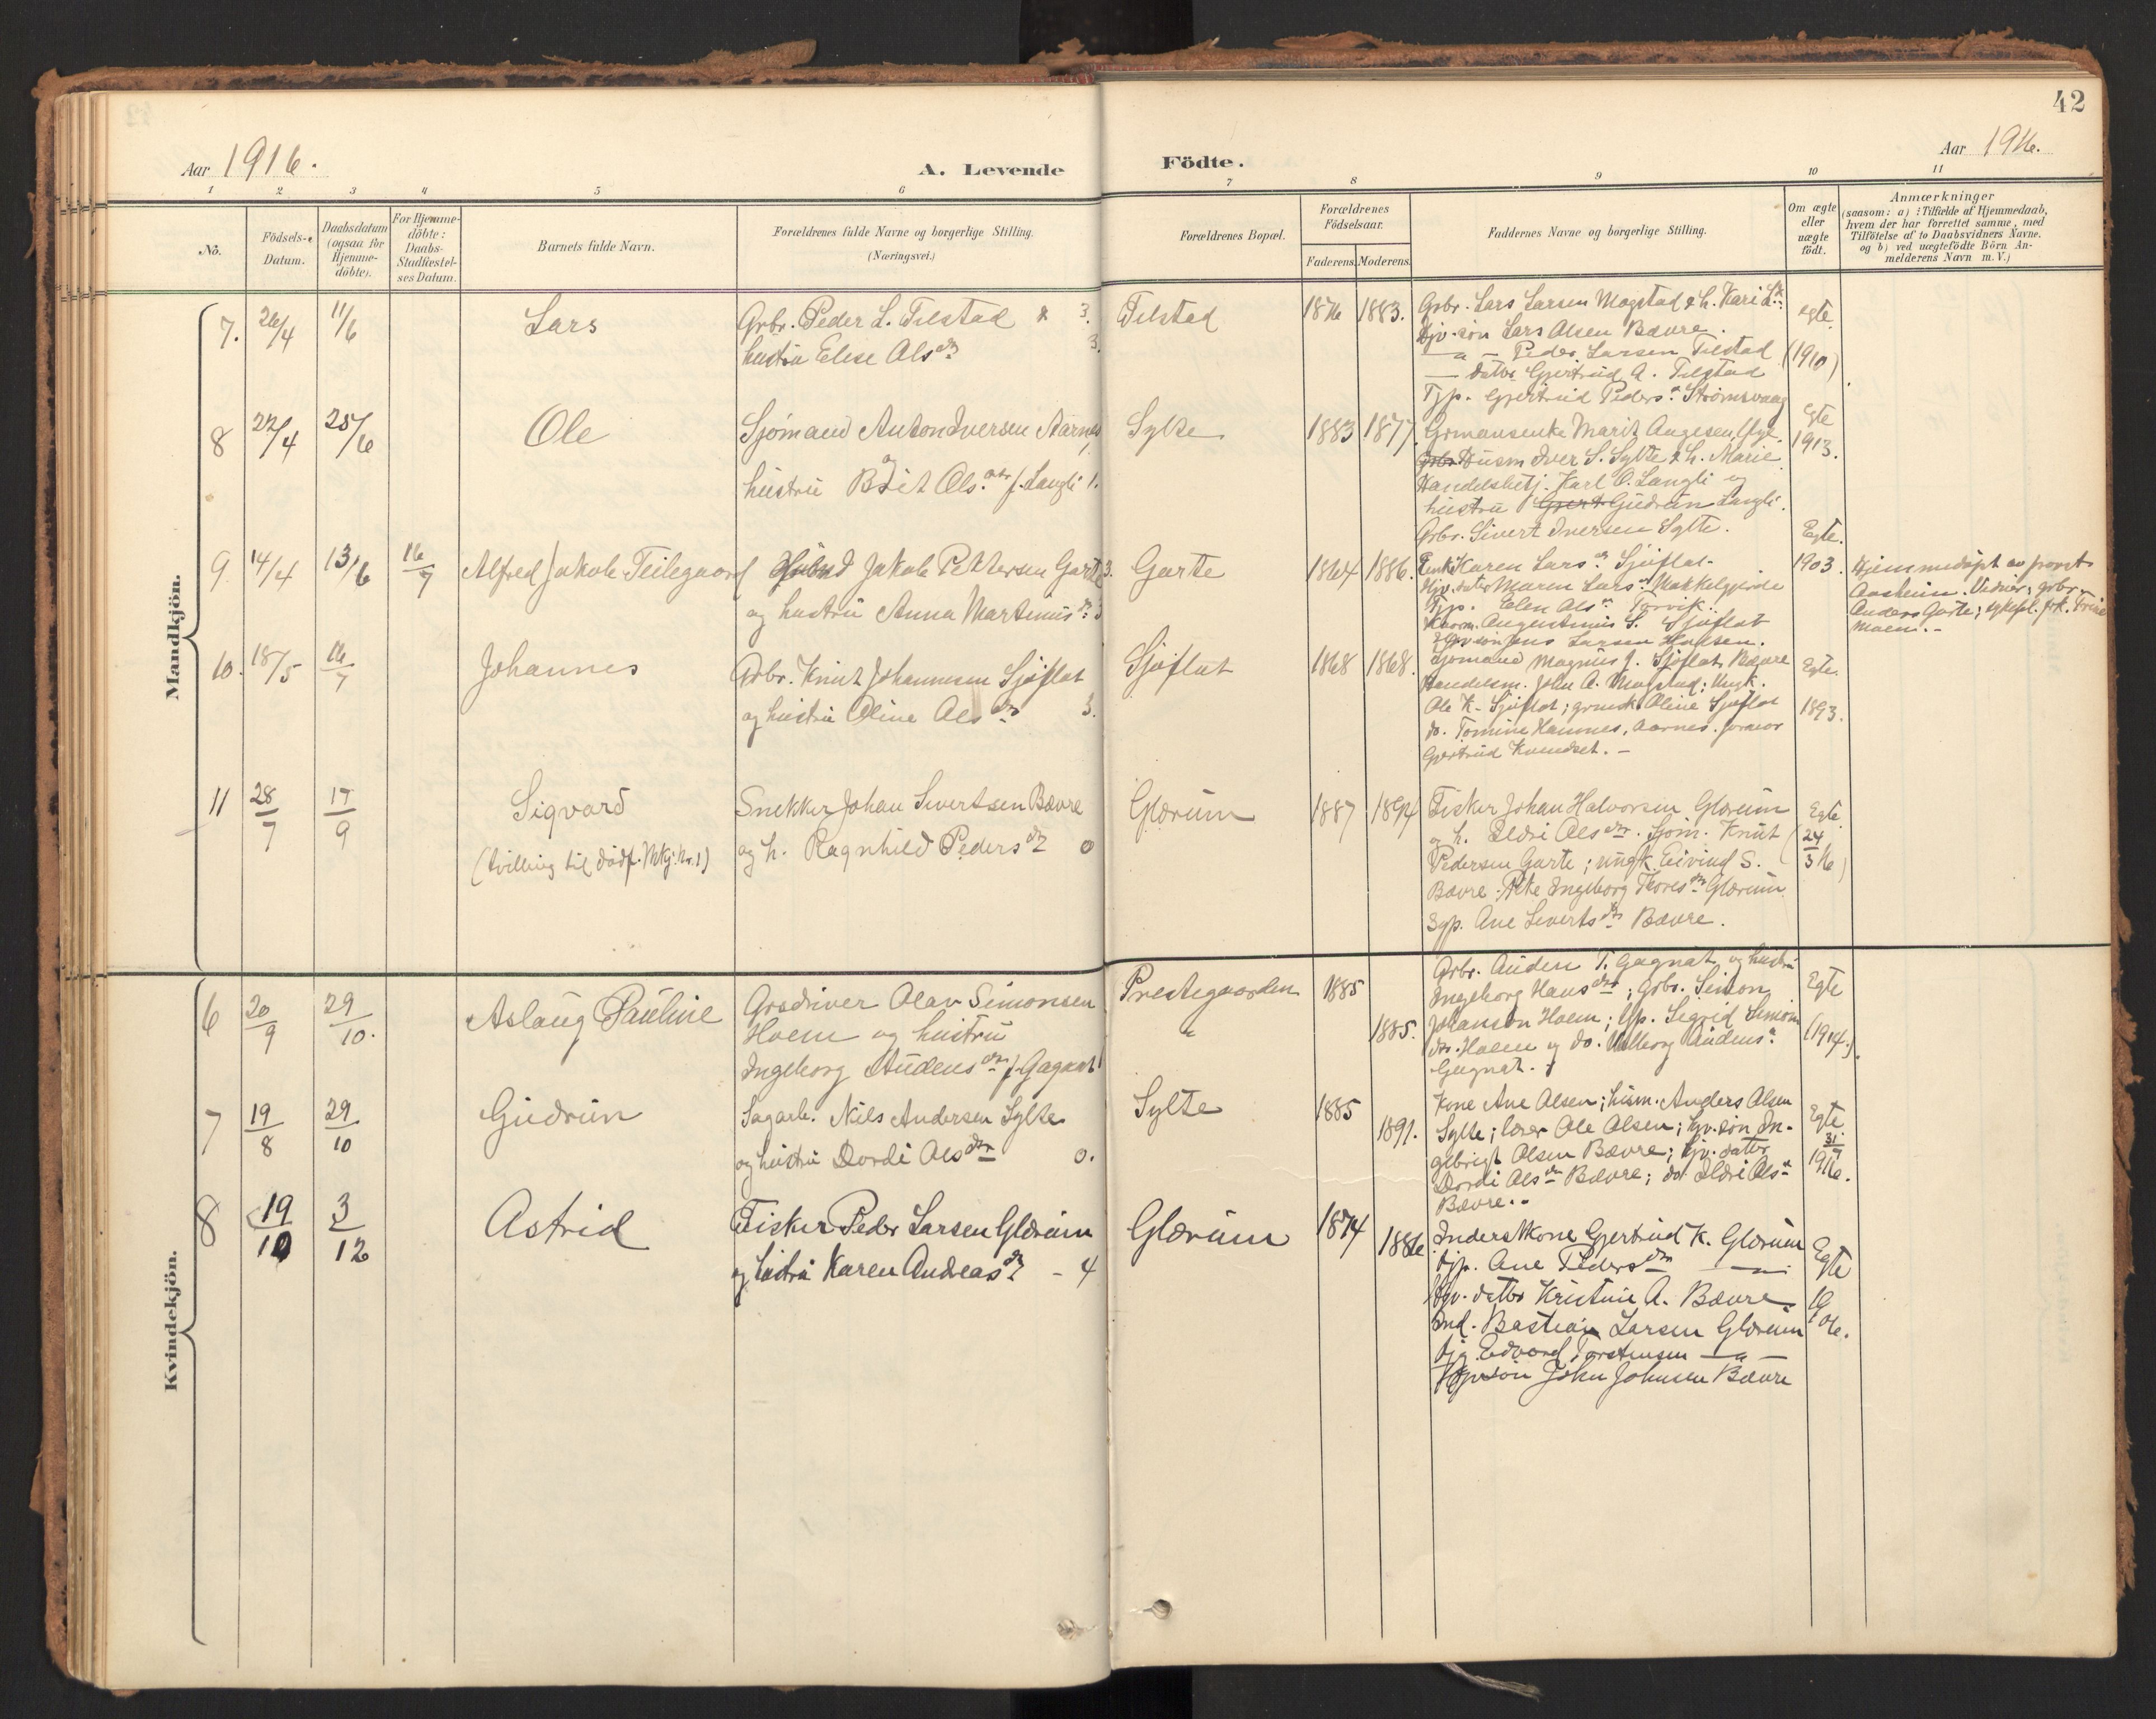 42
Aar 1916.
A. Levende
Födte.
Aar 1916.
1 2 3 4 5 6 7 8 9 10 11
No.
Födsels-
Datum.
Daabsdatum
(ogsaa for
Hjemme-
döbte).
For Hjemme-
döbte:
Daabs-
Stadfæstel-
ses Datum.
Barnets fulde Navn.
Forældrenes fulde Navne og borgerlige Stilling.
(Næringsvei.)
Forældrenes Bopæl.
Forældrenes
Födselsaar.
Faderens.
Moderens.
Faddernes Navne og borgerlige Stilling.
Om ægte
eller
uægte
födt.
Anmærkninger
(saasom: a) i Tilfælde af Hjemmedaab,
hvem der har forrettet samme, med
Tilföielse af to Daabsvidners Navne.
og b) ved uægtefödte Börn An-
melderens Navn m. V.)
Mandkjön.
7. 26/4 11/6 Lars
Grbr. Peder L. Tilstad & 3.
hustru Elise Olsdtr 3.
Tilstad 1876 1883.
Grbr. Lars Larsen Magstad & h. Kari
Hjv. søn Lars Olsen Bævre.
— " — Peder Larsen Tilstad
— datter Gjertrud A. Tilstad
Tjp. Gjertrud Peders. Strømsvaag
egte.
(1910)
8 22/4 25/6 Ole
Sjømand Anton Iversen Aarnes
og
hustru Brit Ols.dtr f. Langli 1.
Sylte 1883 1877.
Grmansenke Marit Aagesen
Husm Iver S. Sylte & h. Marie
Handelsbetj. Karl O. Langli og
hustru Gudrun Langli.
Grbr. Sivert Iversen Sylte.
Egte
1913.
9. 14/4 13/6 16/7 Alfred Jakob Teilegaard
Jakob Pettersen Garte 3.
og hustru Anna Martinusdr. 3
Garte 1864 1886.
Enke Karen Lars. Sjøflat.
Hjv. dater Maren Lars. Nakkelgjerde
Tjp. Elen Ols. Torvik.
Augustinus S. Sjøflat
Jens Larsen Halsen.
Egte.
1903.
Hjemmedøpt av provst
Aasheim. Vidner: grbr.
Anders Garte; sykepl. frk. Trine
Moen. -
10. 18/5 16/7 Johannes
Grbr. Knut Johannesen Sjøflat
og hustru Oline Olsdtr 3.
Sjøflat 1868 1868.
Sjømand Magnus J. Sjøflat, Bævre
Handelsm. John A. Magstad; Ungk.
Ole K. Sjøflat; grmsk Oline Sjøflat
do. Tomine Hamnes, Aarnes.
Gjertrud Kvendset. -
Egte.
1893.
11 28/7 17/9 Sigvard
(tvilling til dødf. Mkj. Nr. 1)
Snekker Johan Sivertsen Bævre
og h. Ragnhild Pedersdtr 0
Glærum 1887 1894
Fisker Johan Halvorsen Glærum
og h. Eldri Olsdtr. Sjøm. Knut
Pedersen Garte; ungk. Eivind S.
Bævre. Pike Ingeborg Toresdtr Glærum
Syp. Ane Sivertsdtr Bævre.
Egte.
(24/3 16)
Kvindekjön.
6 20/9 29/10. Aslaug Pauline
Grsdriver Olav Simonsen
Hoem og hustru
Ingeborg Audensdtr f. Gagnat
Prestegaarden 1885
" 1885.
Grbr. Auden T. Gagnat og hustru
Ingeborg Hansdtr; Grbr. Simon
Johanson Hoem; Gp. Sigrid Simons
dtr. Hoem og do. Valborg Audens.
Gagnat.
Egte
(1914.)
7 19/8 29/10 Gudrun
Sagarb. Nils Andersen Sylte
og hustru Dordi Olsdtr 0.
Sylte 1885 1891.
Kone Ane Olsen; husm. Anders Olsen
Sylte; lærer Ole Olsen; Gv. søn In-
gebrigt Olsen Bævre; Gv. dater
Dordi Olsdtr Bævre; do Eldri Ols.
Bævre..
Egte
31/7
1916.
8 19/10 3/12 Astrid
Fisker Peder Larsen Glærum
og hustru Karen Andreasdtr - 4
Glærum 1874 1886.
Inderstkone Gjertrud K. Glærum
Tjp. Ane Pedersdtr — " —
Hjv. datter Kristine A. Bævre.
Ind. Bastian Larsen Glærum
Edvard Torstensen — " —
Hjv søn John Johnsen Bævre
Egte
19
06.